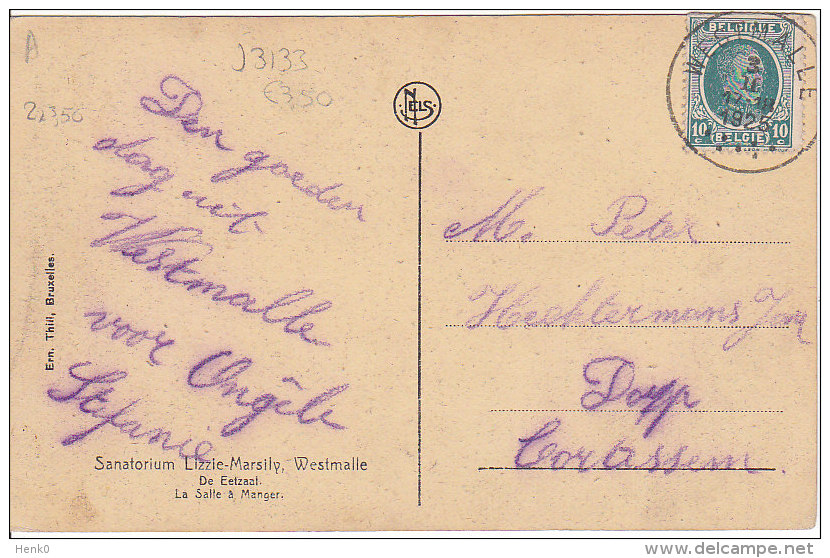 A
J3133
€3,50
22350
NELS
WESTMALLE
3
1925
BELGIQUE
10c 10c
BELGIË
Den goeden
dag uit
Westmalle
voor Ongèle
Stefanie
M. Peter
Hechtermans Jan
Dorp
Corassem.
Ern. Thill, Bruxelles.
Sanatorium Lizzie-Marsily, Westmalle
De Eetzaal.
La Salle à Manger.
Henk0
delcampe.net